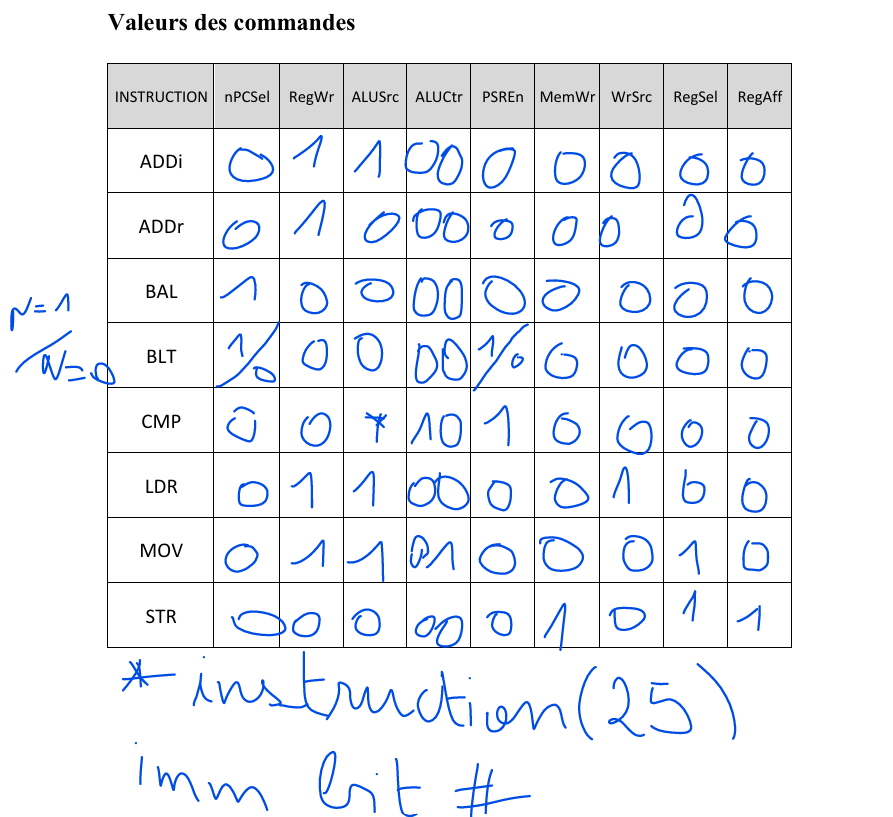 Valeurs des commandes
INSTRUCTION nPCSel RegWr ALUSrc ALUCtr PSREn MemWr WrSrc RegSel RegAff
ADDi 0 1 1 00 0 0 0 0 0
ADDr 0 1 0 00 0 0 0 0 0
BAL 1 0 0 00 0 0 0 0 0
N=1
/N=0 BLT 1/0 0 0 00 1/0 0 0 0 0
CMP 0 0 * 10 1 0 0 0 0
LDR 0 1 1 00 0 0 1 0 0
MOV 0 1 1 01 0 0 0 1 0
STR 0 0 0 00 0 1 0 1 1
* instruction(25)
imm bit #